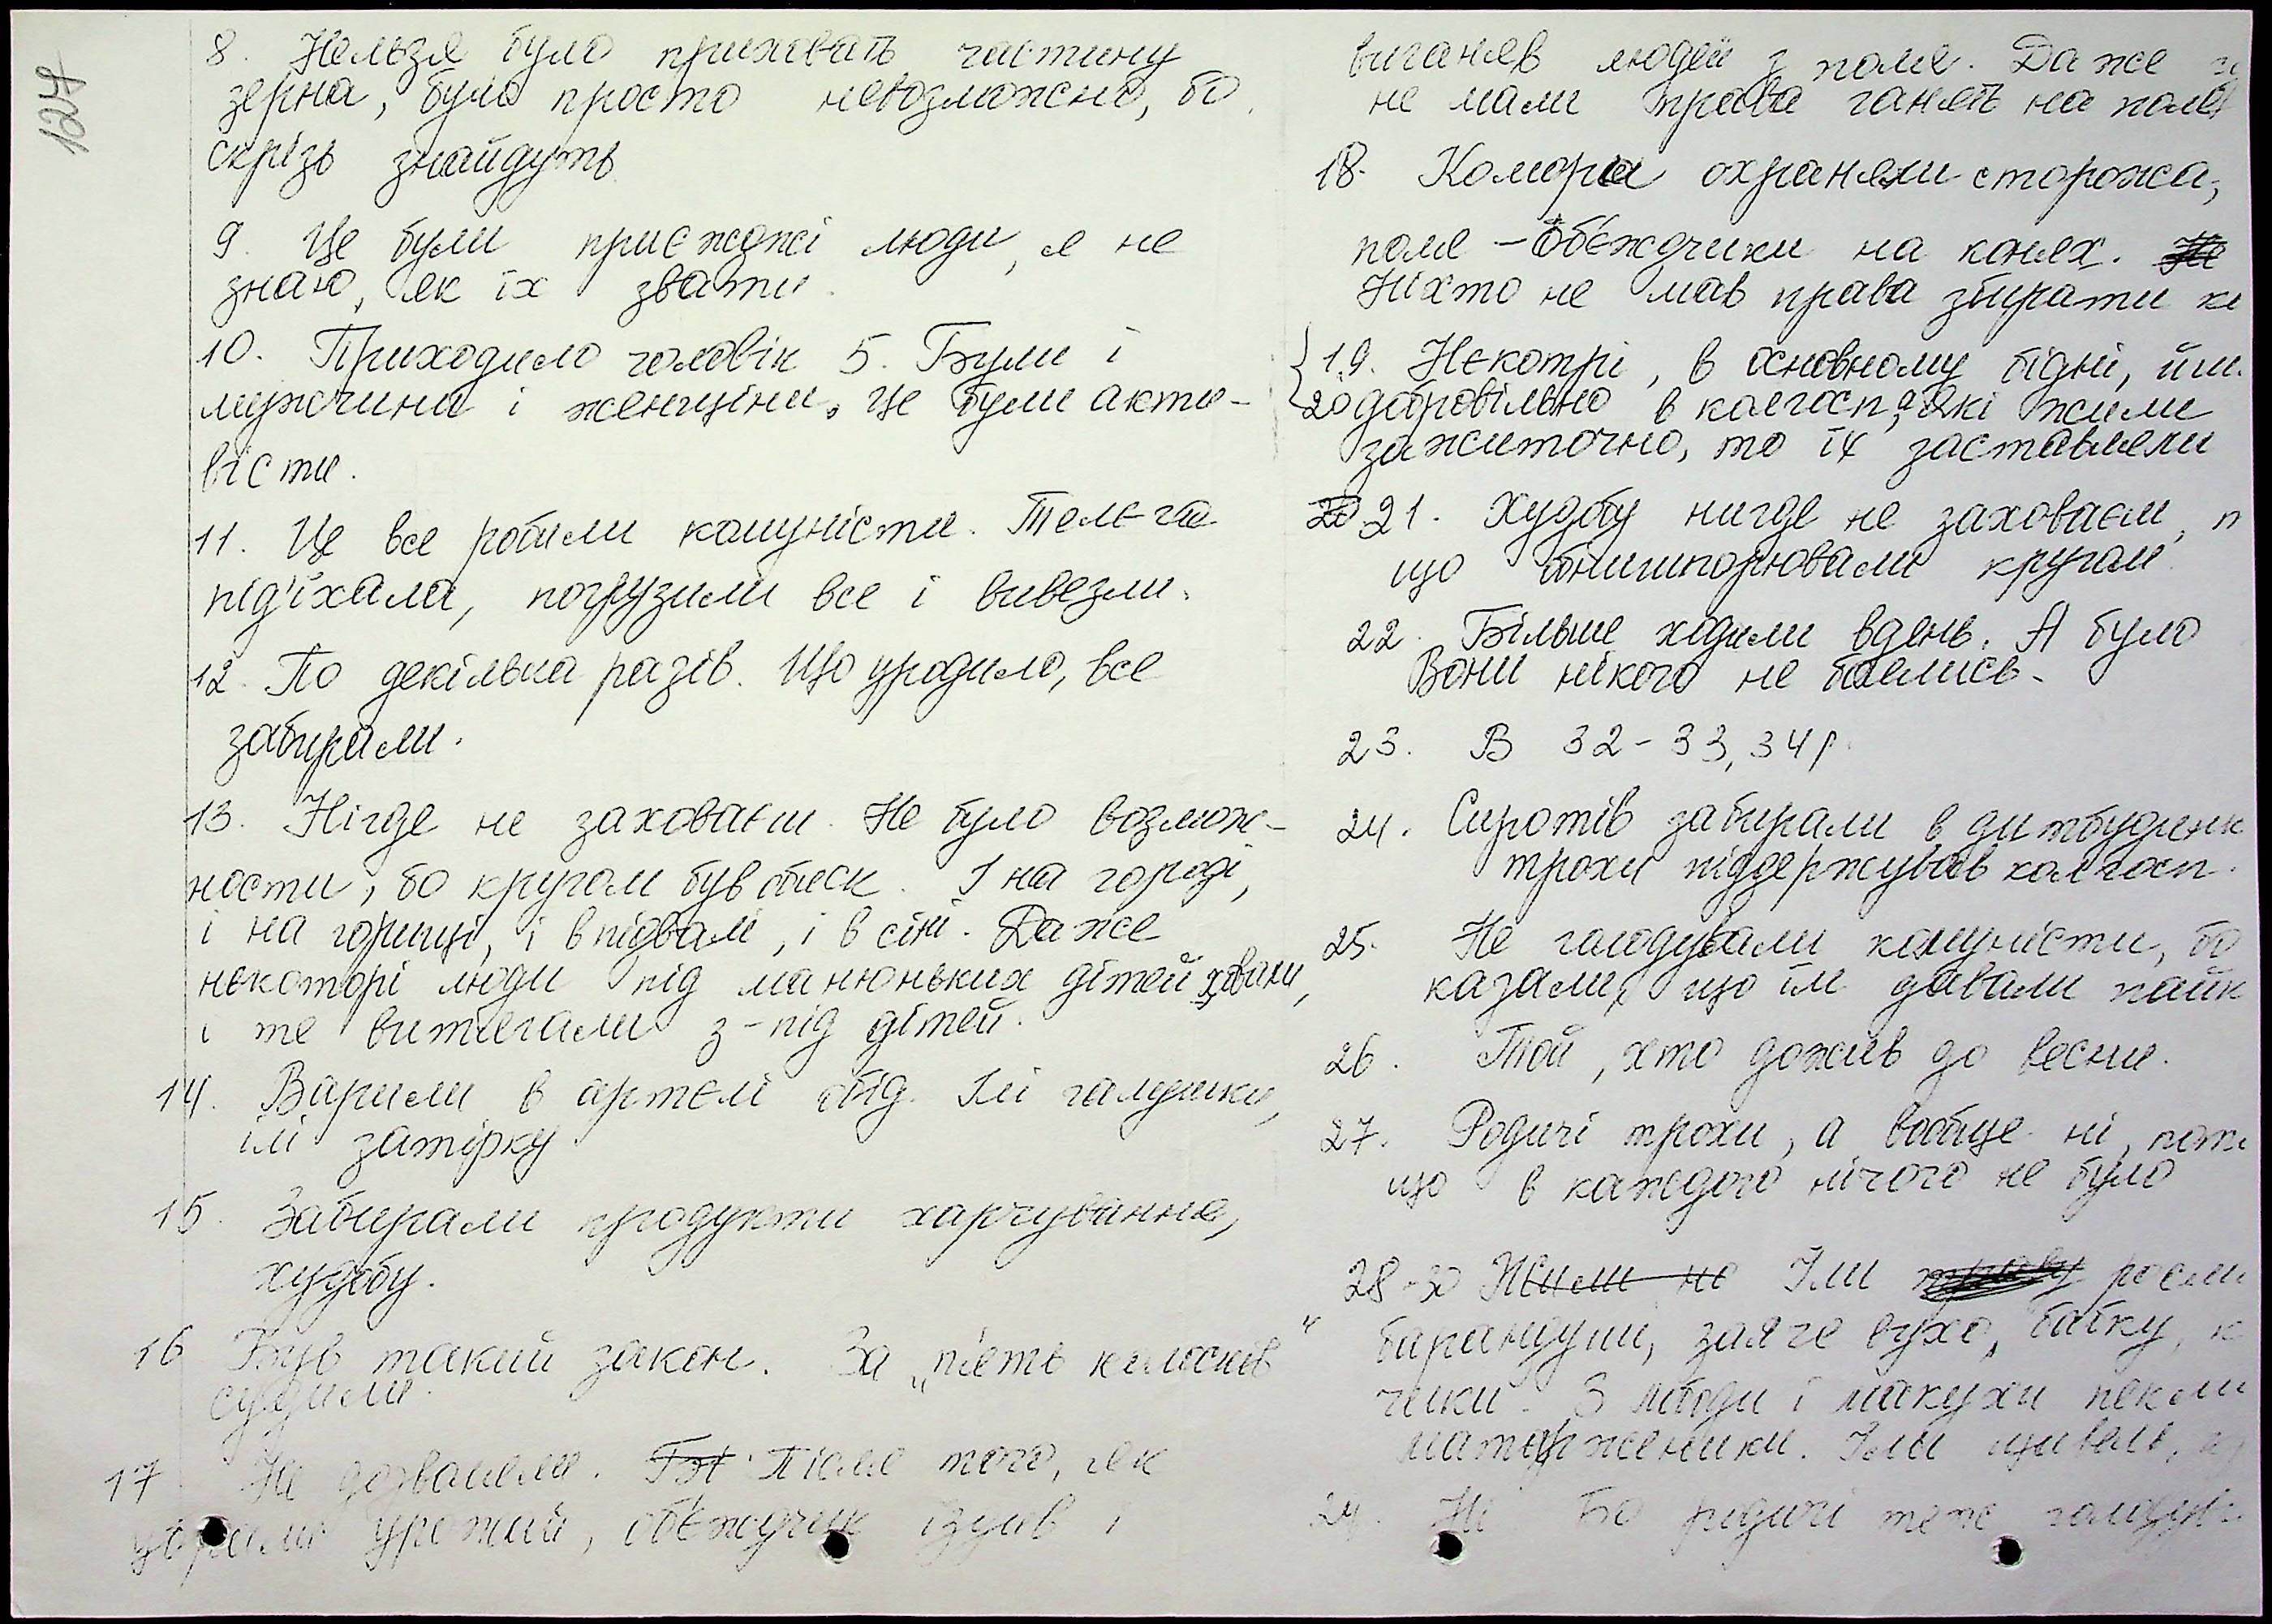 127
8. Нельзя було приховать частину
зерна, було просто невозможно, бо
скрізь знайдуть
9. Це були приєжджі люди, я не
знаю, як їх звати.
10. Приходило чоловік 5. Були і
мужчини і женщіни. Це були акти-
вісти.
11. Це все робили комуністи. Телєга
під'їхала, погрузили все і вивезли.
12. По декілька разів. Що уродило, все
забирали.
13. Нігде не заховаєш. Не було возмож-
ности, бо кругом був обиск. І на городі,
і на горищі, і в підвалі, і в сіні. Даже
некоторі люди під манюньких дітей ховали,
і те витягали з-під дітей.
14. Варили в артелі обід. Їлі галушки,
їлі затірку
15. Забирали продукти харчування,
худобу.
16 Був такий закон. За „п'ять колосків"
судили.
17 Не дозволяли. Після того, як
убрали урожай, об'єждчик їздив і
виганяв людей з поля. Даже
не мали права ганять на поле
18. Комори охраняли сторожа,
поле - об'єждчики на конях.
Ніхто не мав права збирати
19. Некотрі, в основному бідні, йш
20 добровільно в колгосп, а які жили
зажиточно, то їх заставляли
21. Худобу нигде не заховаєш, п
що обнишпорювали кругом.
22. Більше ходили вдень. А було
Вони нікого не боялись.
23. В 32-33, 34 р.
24. Сиротів забирали в дитбудинк
трохи піддержував колгосп.
25. Не голодували комуністи, бо
казали, що їм давали пайк
26. Той, хто дожив до весни.
27. Родичі трохи, а вобще ні, пото
що в каждого нічого не було
28-30 Їли
барандуші, заяче вухо, бабку, к
чики. З лободи і макухи пекли
маторженики. Їли щавель,
29. Ні Бо родичі теж голодув